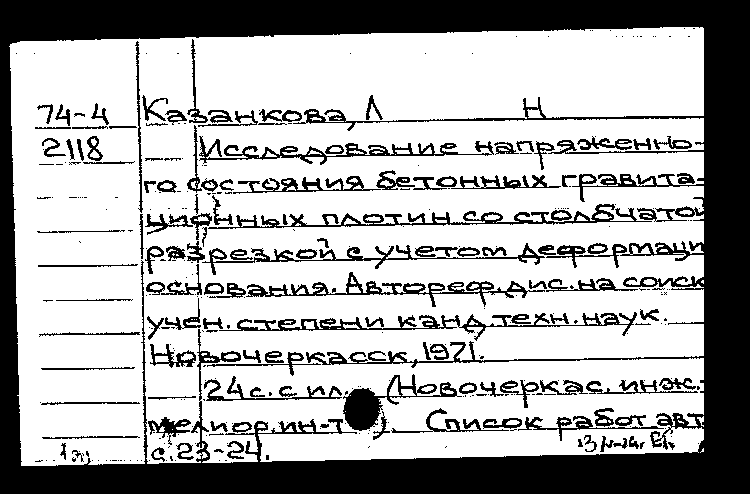 74-4 Казанкова, Л Н
2118 Исследование напряженно-
го состояния бетонных гравита-
ционных плотин со столбчатой
разрезкой с учетом деформаци
основания. Автореф. дис. на соиск
учен. степени канд. техн. наук.
Новочеркасск, 1971.
24 с. с ил. (Новочеркас. инж.-
мелиор. ин-т). Список работ авт.
с. 23-24.